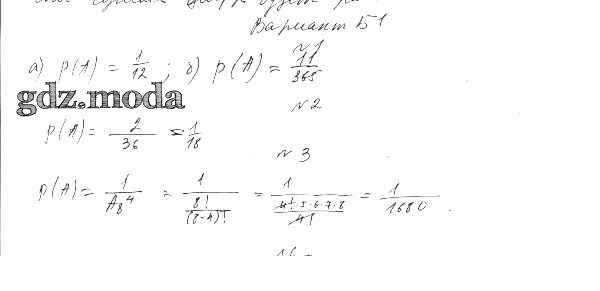 Вариант Б1
№1
а) p(A) = 1/12 ; б) p(A) = 11/365
gdz.moda
№2
p(A) = 2/36 = 1/18
№3
p(A) = 1/A₈⁴ = 1/(8!/(8-4)!) = 1/(4!·5·6·7·8/4!) = 1/1680 .